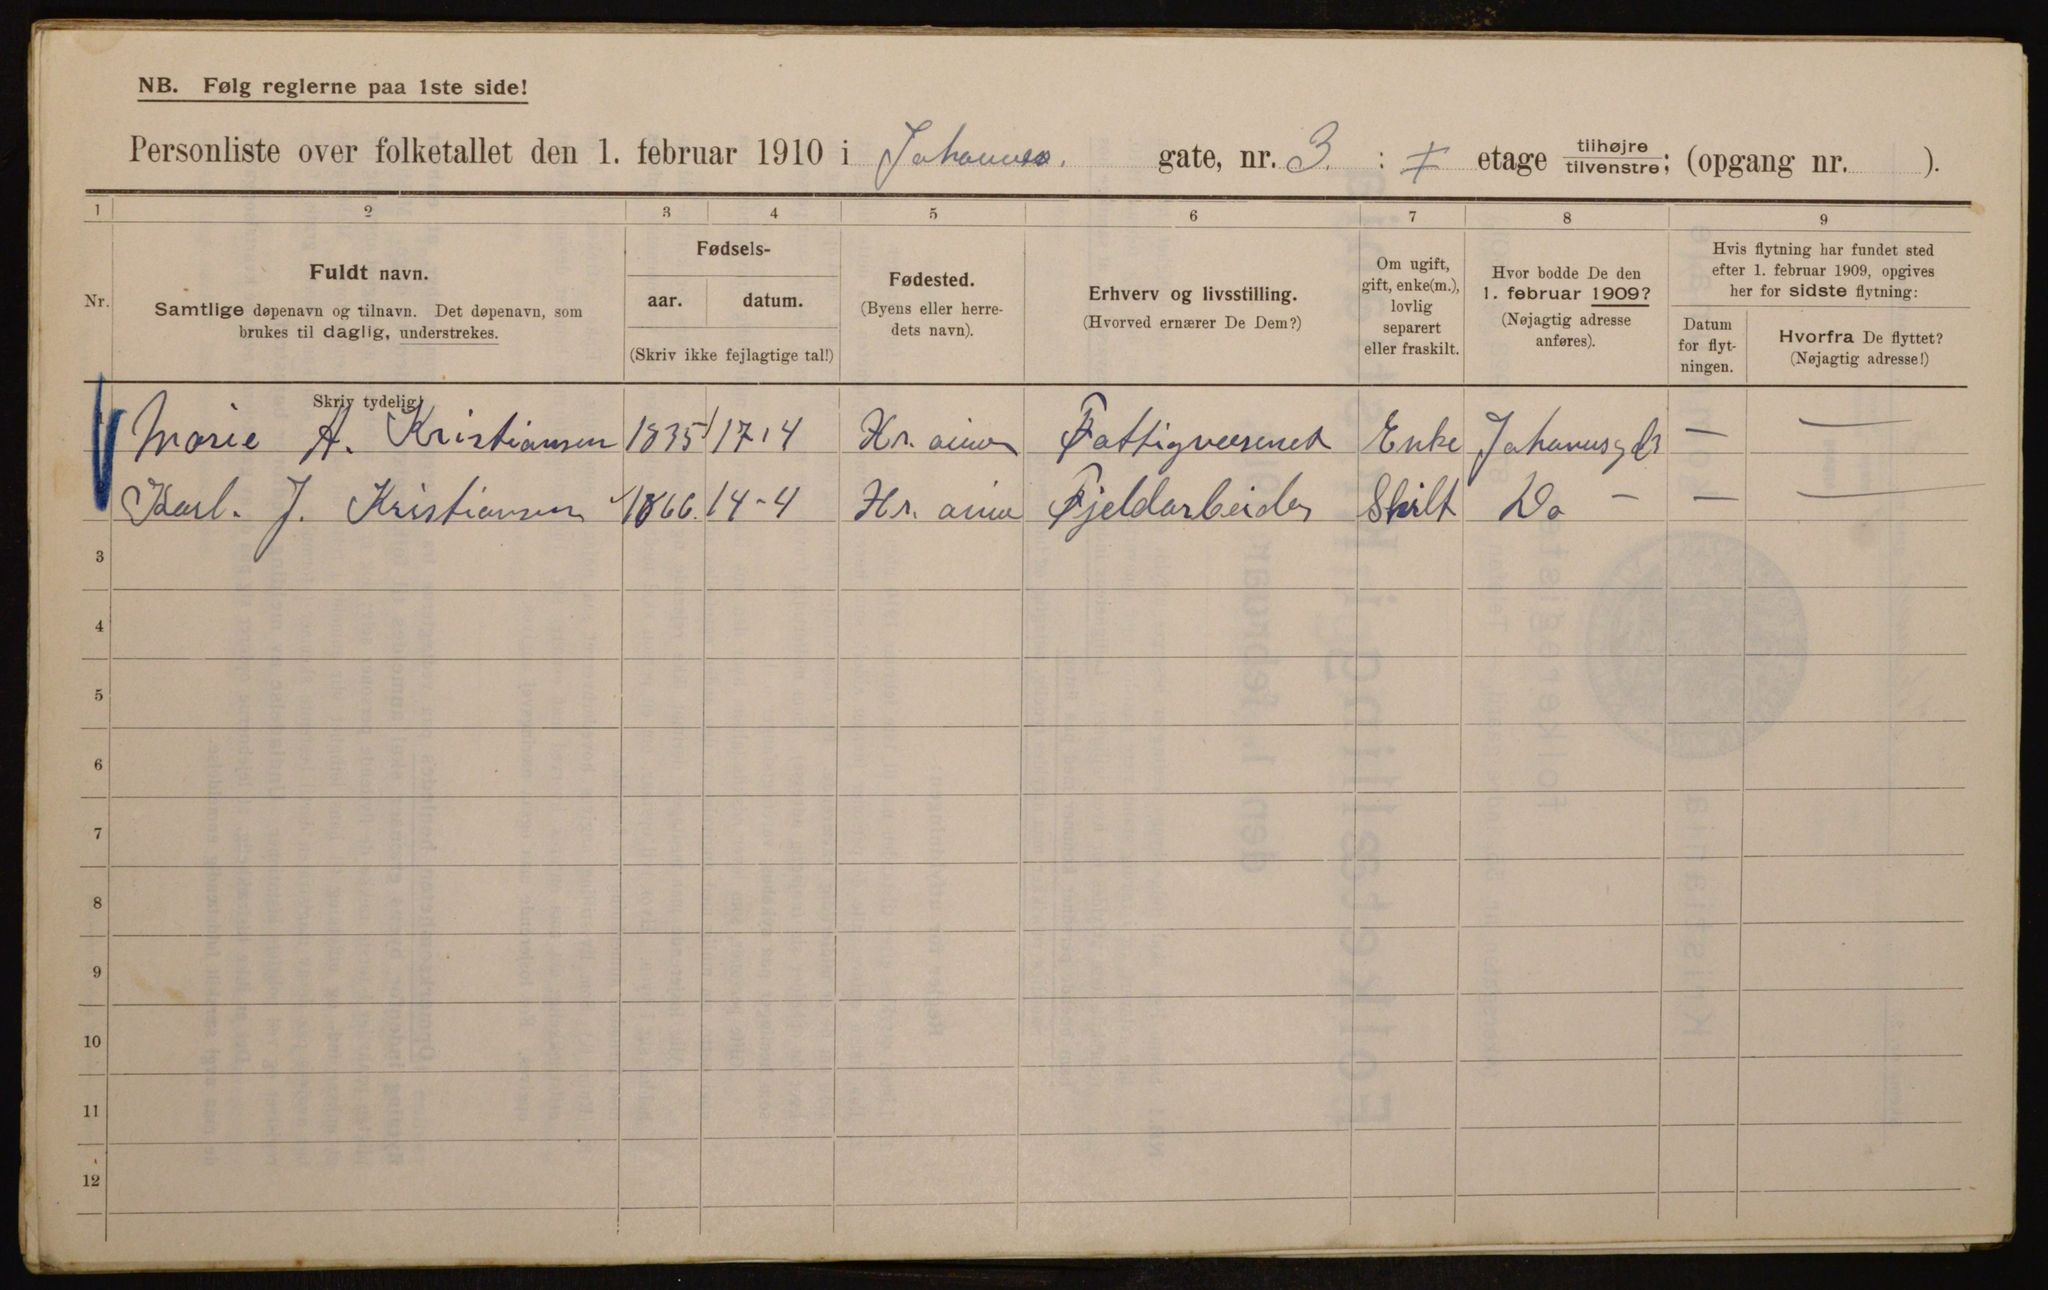 NB. Følg reglerne paa 1ste side!
Personliste over folketallet den 1. februar 1910 i Johannes. gate, nr. 3. : etage tilhøjre/tilvenstre; (opgang nr. ).
1 2 3 4 5 6 7 8 9
Nr.
Fuldt navn.
Samtlige døpenavn og tilnavn. Det døpenavn, som
brukes til daglig, understrekes.
Skriv tydelig!
Fødsels-
aar. datum.
(Skriv ikke fejlagtige tal!)
Fødested.
(Byens eller herre-
dets navn).
Erhverv og livsstilling.
(Hvorved ernærer De Dem?)
Om ugift,
gift, enke(m.),
lovlig
separert
eller fraskilt.
Hvor bodde De den
1. februar 1909?
(Nøjagtig adresse
anføres).
Hvis flytning har fundet sted
efter 1. februar 1909, opgives
her for sidste flytning:
Datum
for flyt-
ningen.
Hvorfra De flyttet?
(Nøjagtig adresse!)
Marie A. Kristiansen 1835 17-4 Kr. ania Fattigvæsenet Enke — —
Karl. J. Kristiansen 1866. 14-4 Kr. ania Fjeldarbeider Skilt Do — — —
3
4
5
6
7
8
9
10
11
12